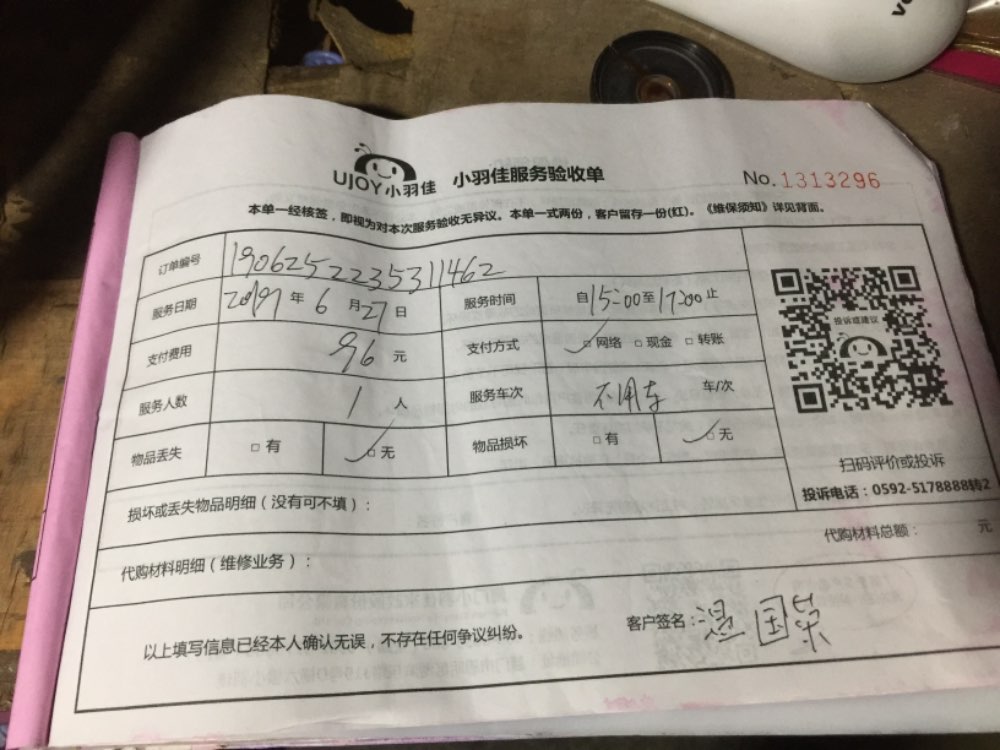 UJOY小羽佳 小羽佳服务验收单 No.1313296
本单一经核签,即视为对本次服务验收无异议。本单一式两份,客户留存一份(红)。《维保须知》详见背面。
订单编号 1906252235311462
服务日期 2019年6月27日 服务时间 自15:00至17:00止
支付费用 96元 支付方式 ☑网络 □现金 □转账
服务人数 1人 服务车次 不用车 车/次
物品丢失 □有 ☑无 物品损坏 □有 ☑无
投诉或建议
扫码评价或投诉
投诉电话:0592-5178888转2
损坏或丢失物品明细(没有可不填):
代购材料明细(维修业务): 代购材料总额: 元
以上填写信息已经本人确认无误,不存在任何争议纠纷。 客户签名: 国荣